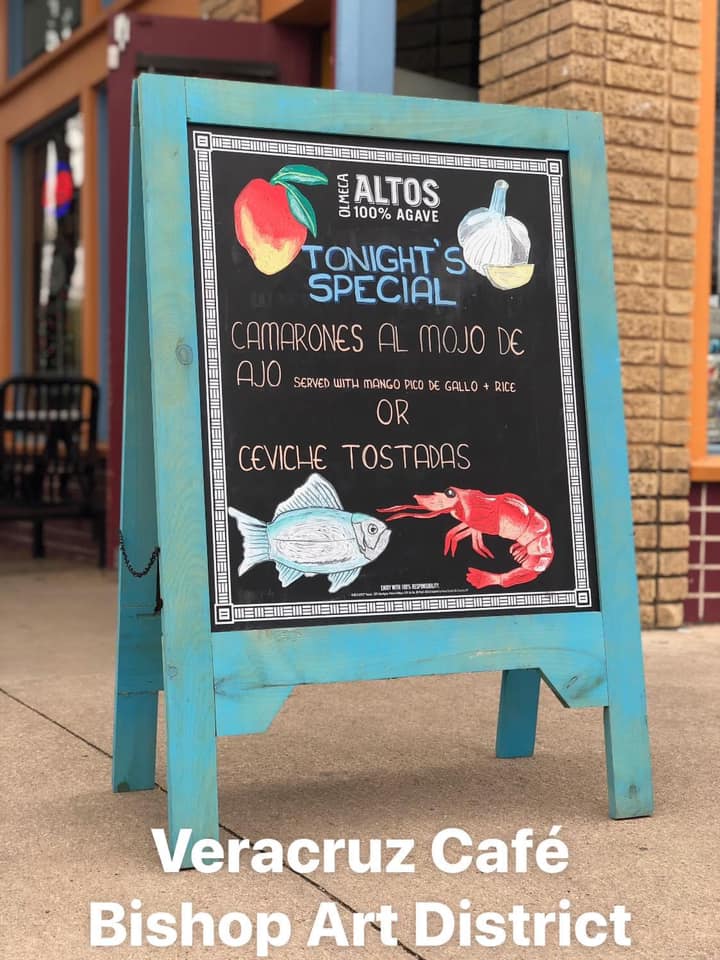 OLMECA
ALTOS
100% AGAVE
TONIGHT'S
SPECIAL
CAMARONES AL MOJO DE
AJO SERVED WITH MANGO PICO DE GALLO + RICE
OR
CEVICHE TOSTADAS
ENJOY WITH 100% RESPONSIBILITY.
Veracruz Café
Bishop Art District